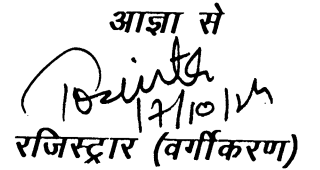 आज्ञा से
17/10/24
रजिस्ट्रार (वर्गीकरण)